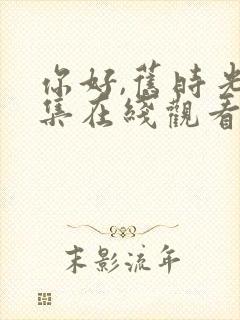 你好,舊時光
集在綫觀看
末影流年